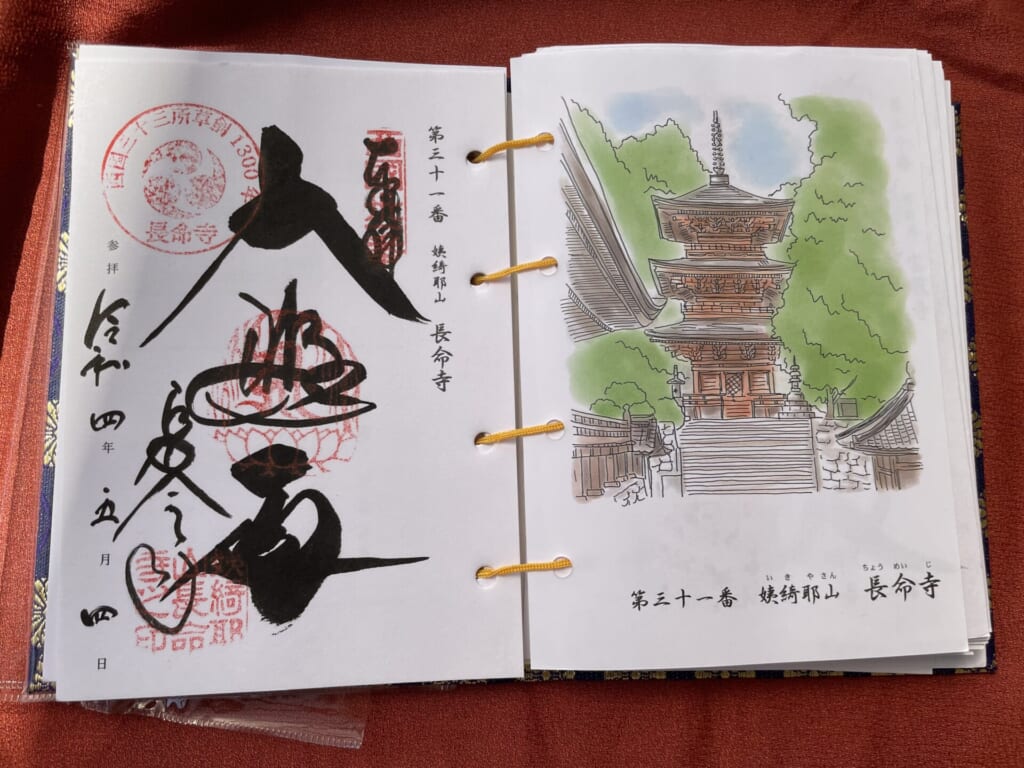 第三十一番 姨綺耶山 長命寺
西国三十三所草創1300年
長命寺
大
長命寺
姨綺耶山長命寺之印
参拝 令和四年五月四日
いきやさん ちょうめいじ
第三十一番 姨綺耶山 長命寺